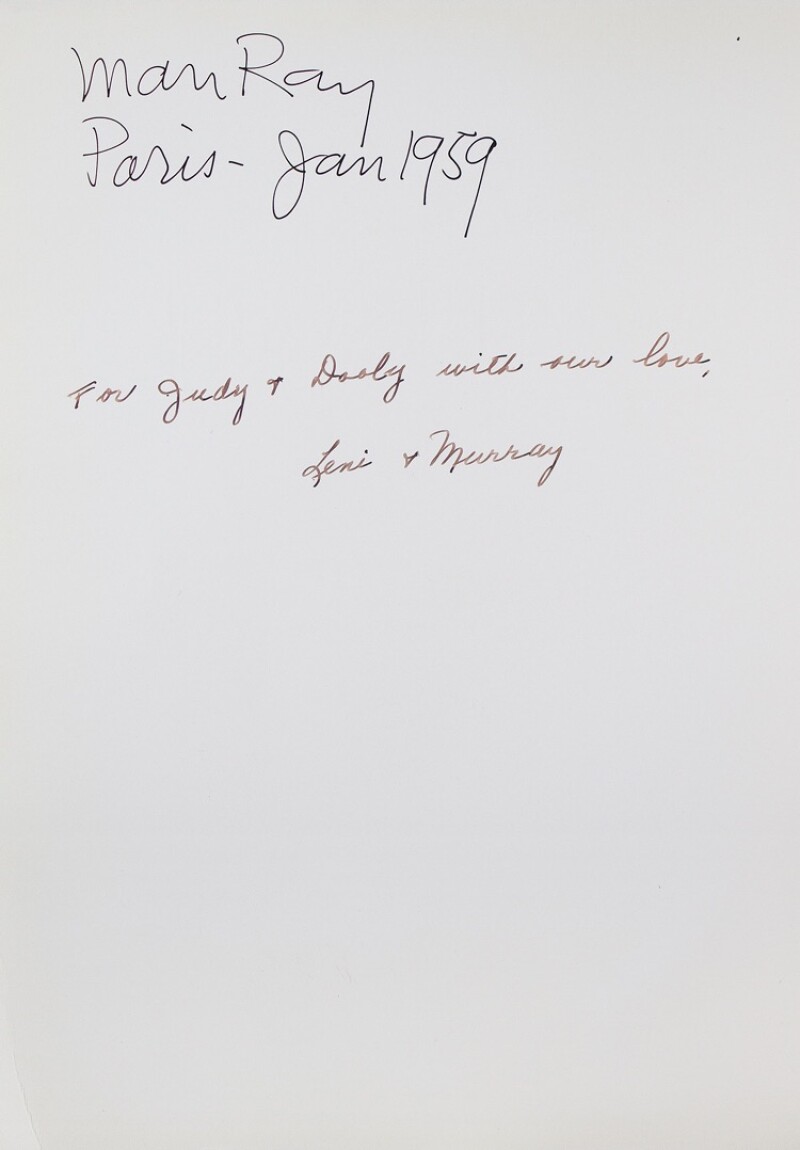 Man Ray
Paris - Jan 1959
For Judy + Dooly with our love,
Leni + Murray